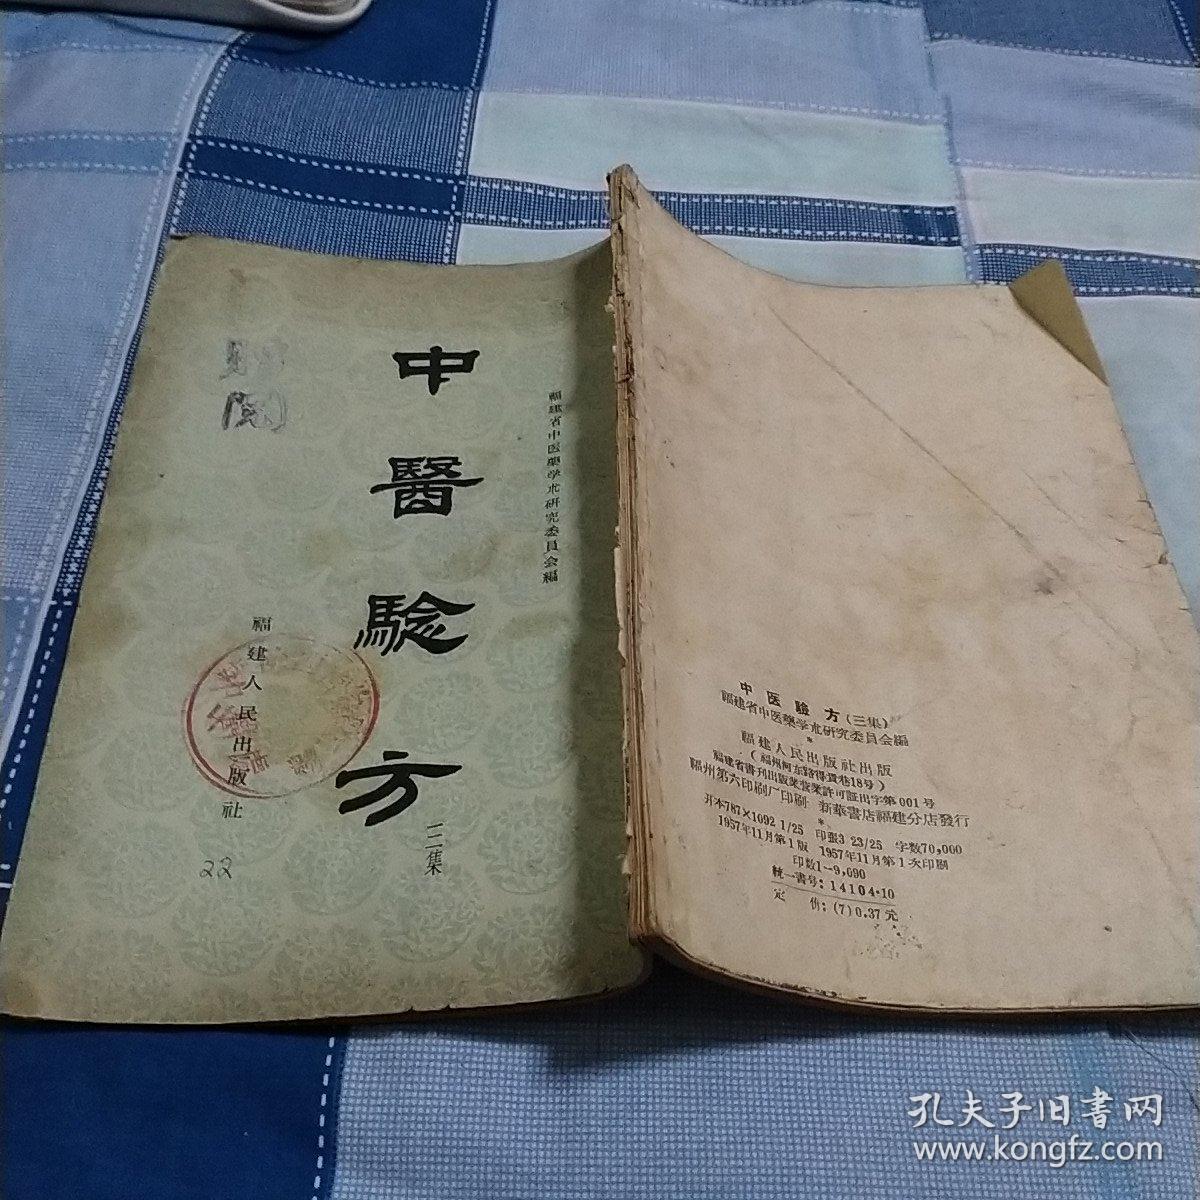 福建省中医藥学朮研究委員会編
中醫驗方
三集
福建人民出版社
22
中医驗方(三集)
福建省中医藥学朮研究委員会編
*
福建人民出版社出版
(福州河东路得貴巷18号)
福建省書刊出版業营業許可証出字第001号
福州第六印刷厂印刷 新華書店福建分店發行
*
开本787×1092 1/25 印張3 23/25 字数70,000
1957年11月第1版 1957年11月第1次印刷
印数1—9,090
統一書号:14104·10
定 价:(7)0.37元
孔夫子旧書网
www.kongfz.com